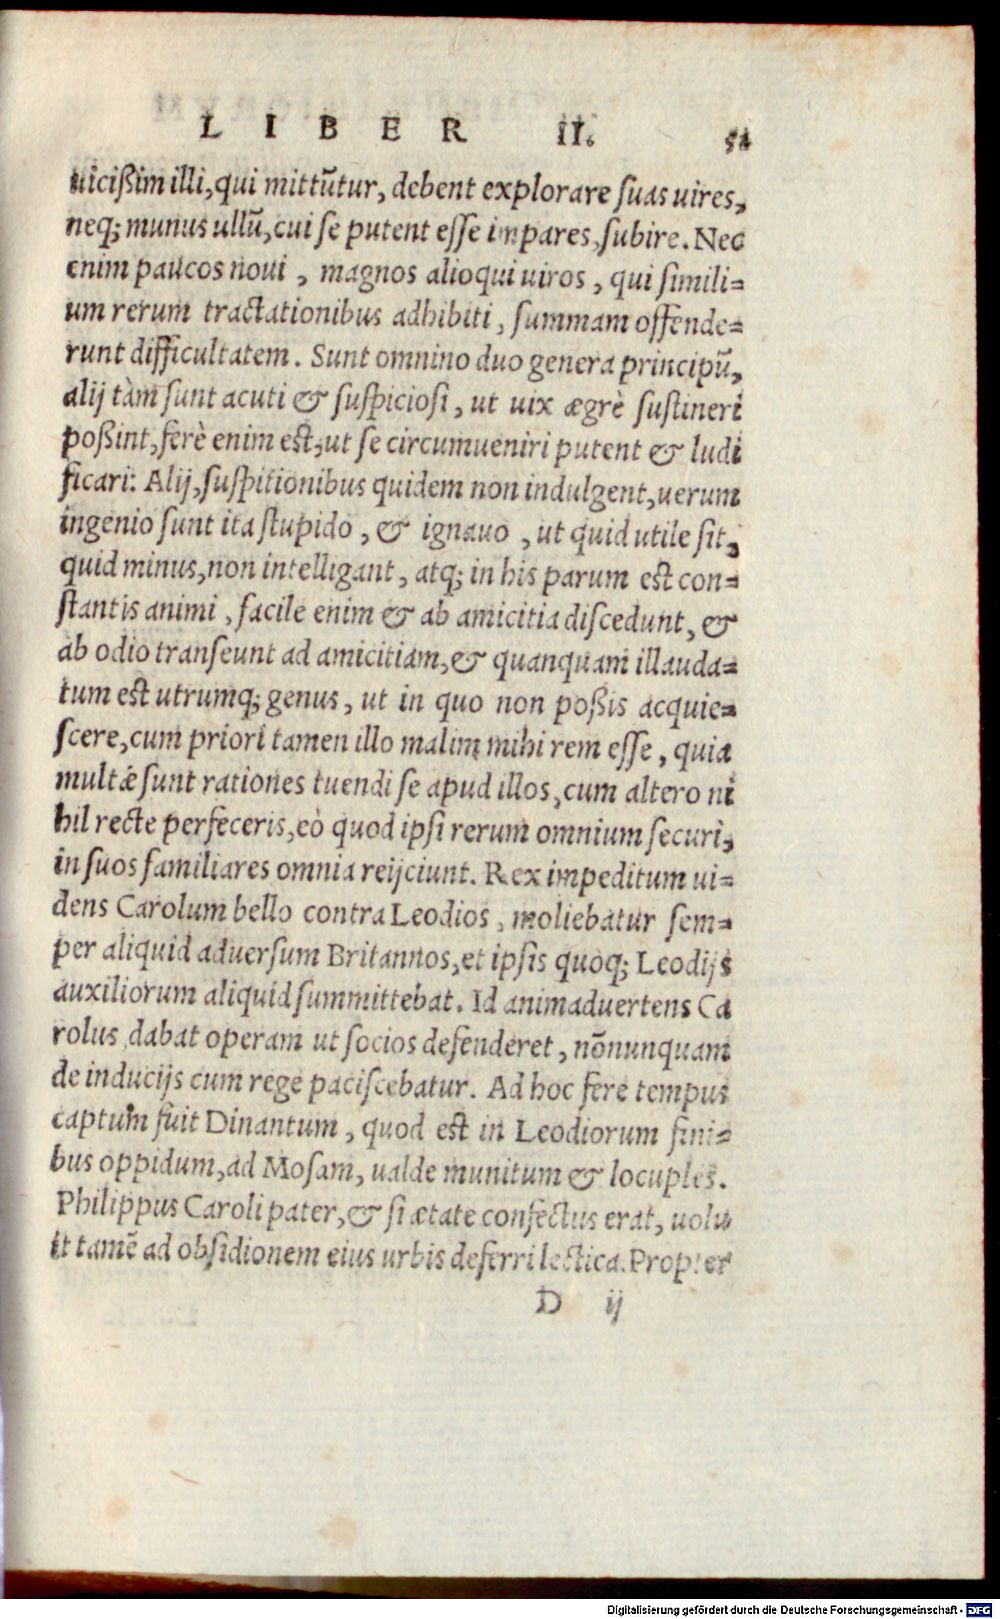 LIBER II. 51
uicißim illi, qui mittūtur, debent explorare suas uires,
neq; munus ullū, cui se putent esse impares, subire. Nec
enim paucos noui, magnos alioqui uiros, qui simili=
um rerum tractationibus adhibiti, summam offende=
runt difficultatem. Sunt omnino duo genera principū,
alij tàm sunt acuti & suspiciosi, ut uix ægrè sustineri
poßint, ferè enim est, ut se circumueniri putent & ludi
ficari: Alij, suspitionibus quidem non indulgent, uerum
ingenio sunt ita stupido, & ignauo, ut quid utile sit,
quid minus, non intelligant, atq; in his parum est con=
stantis animi, facile enim & ab amicitia discedunt, &
ab odio transeunt ad amicitiam, & quanquam illauda=
tum est utrumq; genus, ut in quo non poßis acquie=
scere, cum priori tamen illo malim mihi rem esse, quia
multæ sunt rationes tuendi se apud illos, cum altero ni
hil recte perfeceris, eò quod ipsi rerum omnium securi,
in suos familiares omnia reijciunt. Rex impeditum ui=
dens Carolum bello contra Leodios, moliebatur sem=
per aliquid aduersum Britannos, et ipsis quoq; Leodijs
auxiliorum aliquid summittebat. Id animaduertens Ca
rolus dabat operam ut socios defenderet, nōnunquam
de inducijs cum rege paciscebatur. Ad hoc fere tempus
captum fuit Dinantum, quod est in Leodiorum fini=
bus oppidum, ad Mosam, ualde munitum & locuples.
Philippus Caroli pater, & si ætate confectus erat, uolu
it tamē ad obsidionem eius urbis deferri lectica. Propter
D ij
Digitalisierung gefördert durch die Deutsche Forschungsgemeinschaft - DFG